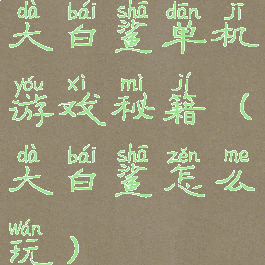 dà bái shā dān jī
大白鲨单机
yóu xì mì jí
游戏秘籍（
dà bái shā zěn me
大白鲨怎么
wán
玩）